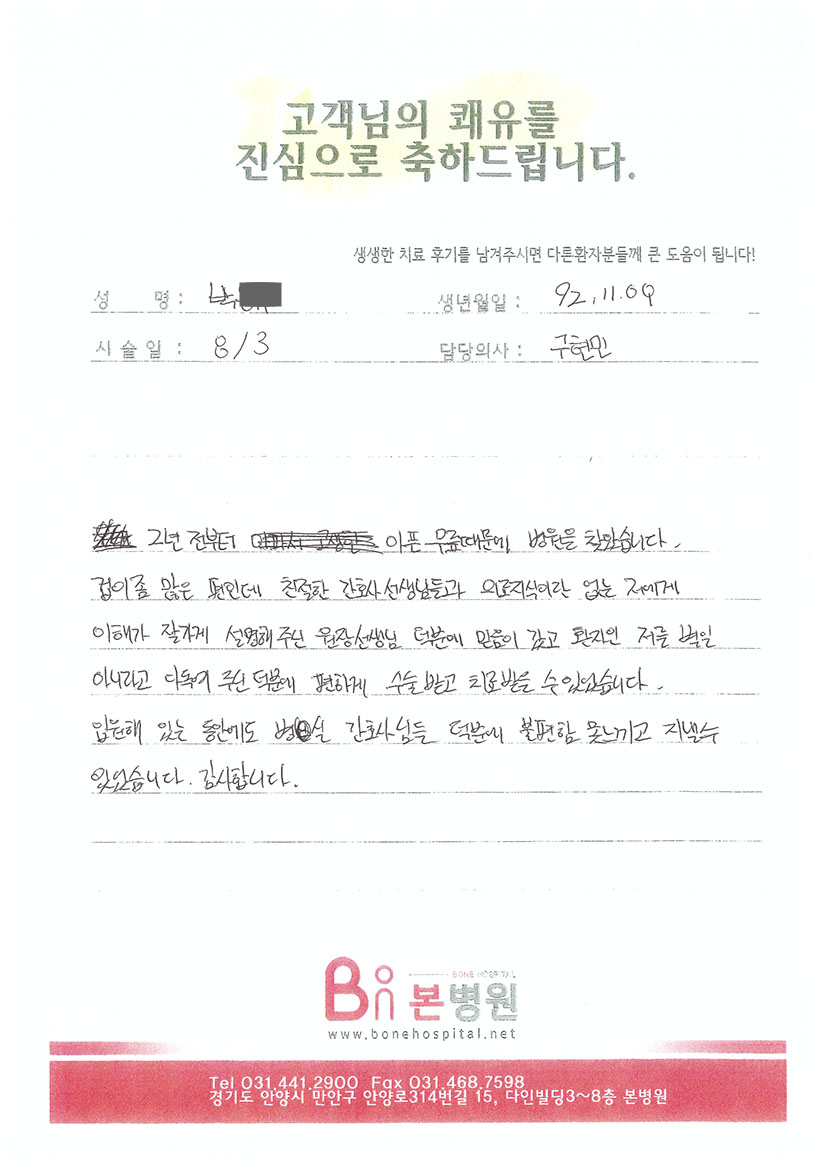 고객님의 쾌유를
진심으로 축하드립니다.
생생한 치료 후기를 남겨주시면 다른환자분들께 큰 도움이 됩니다!
성 명 :
생년월일 : 92.11.09
시 술 일 : 8/3
담당의사 : 구현민
2년 전부터 아픈 무릎때문에 병원을 찾았습니다.
겁이좀 많은 편인데 친절한 간호사선생님들과 의료지식이란 없는 저에게
이해가 잘가게 설명해주신 원장선생님 덕분에 믿음이 갔고 환자인 저를 별일
아니라고 다독여 주신 덕분에 편하게 수술받고 치료받을 수 있었습니다.
입원해 있는 동안에도 병실 간호사님들 덕분에 불편함 못느끼고 지낼수
있었습니다. 감사합니다.
BONE HOSPITAL
Bon 본병원
www.bonehospital.net
Tel 031.441.2900 Fax 031.468.7598
경기도 안양시 만안구 안양로314번길 15, 다인빌딩3~8층 본병원